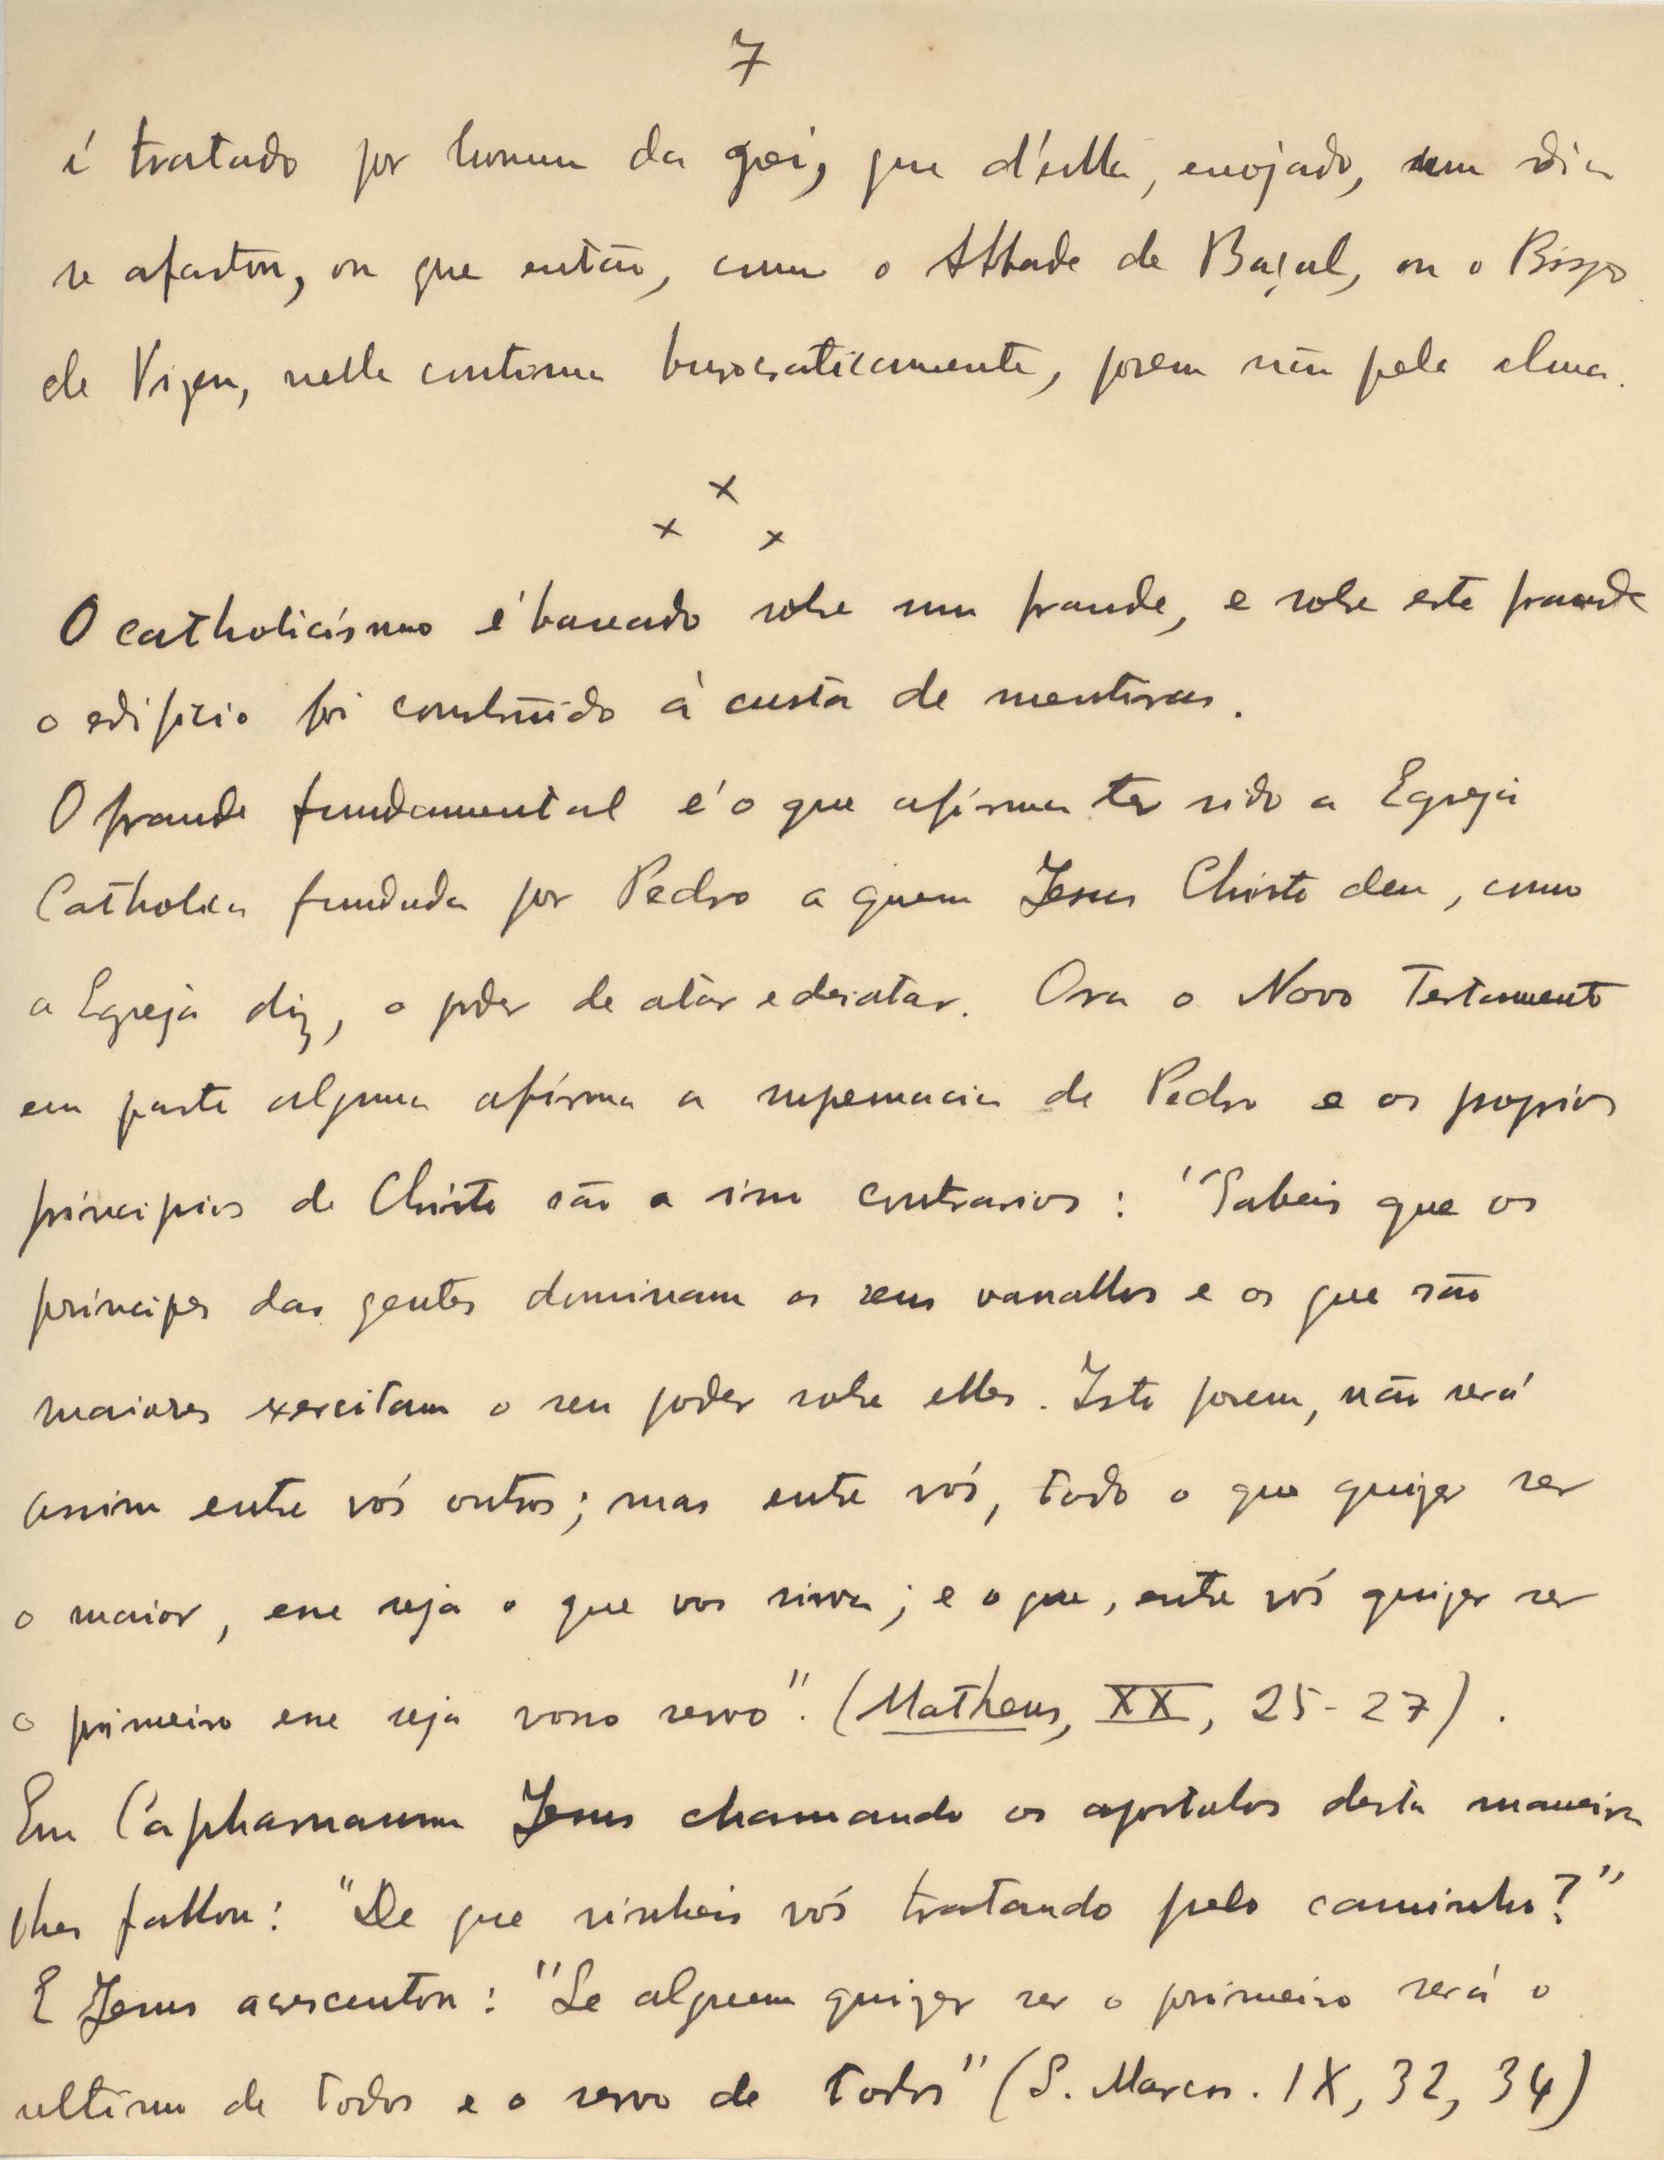 7
é tratado por homem da grei, que d'ella, enojado, um dia
se afastou, ou que então, como o Abbade de Baçal, ou o Bispo
de Vizeu, nella continua burocraticamente, porem não pela alma.
x
x x
O catholicismo é baseado sobre um fraude, e sobre este fraude
o edificio foi construido à custa de mentiras.
O fraude fundamental é o que afirma ter sido a Egreja
Catholica fundada por Pedro a quem Jesus Christo deu, como
a Egreja diz, o poder de atar e desatar. Ora o Novo Testamento
em parte alguma afirma a supremacia de Pedro e os proprios
principios de Christo são a isso contrarios: "Sabeis que os
principes das gentes dominam os seus vassallos e os que são
maiores exercitam o seu poder sobre elles. Isto porem, não será
assim entre vós outros; mas entre vós, todo o que quizer ser
o maior, esse seja o que vos sirva; e o que, entre vós quizer ser
o primeiro esse seja vosso servo". (Matheus, XX, 25-27).
Em Capharnaum Jesus chamando os apostolos desta maneira
lhes fallou: "De que vinheis vós tratando pelo caminho?"
E Jesus acrescentou: "Se alguem quizer ser o primeiro será o
ultimo de todos e o servo de todos" (S. Marcos. IX, 32, 34)